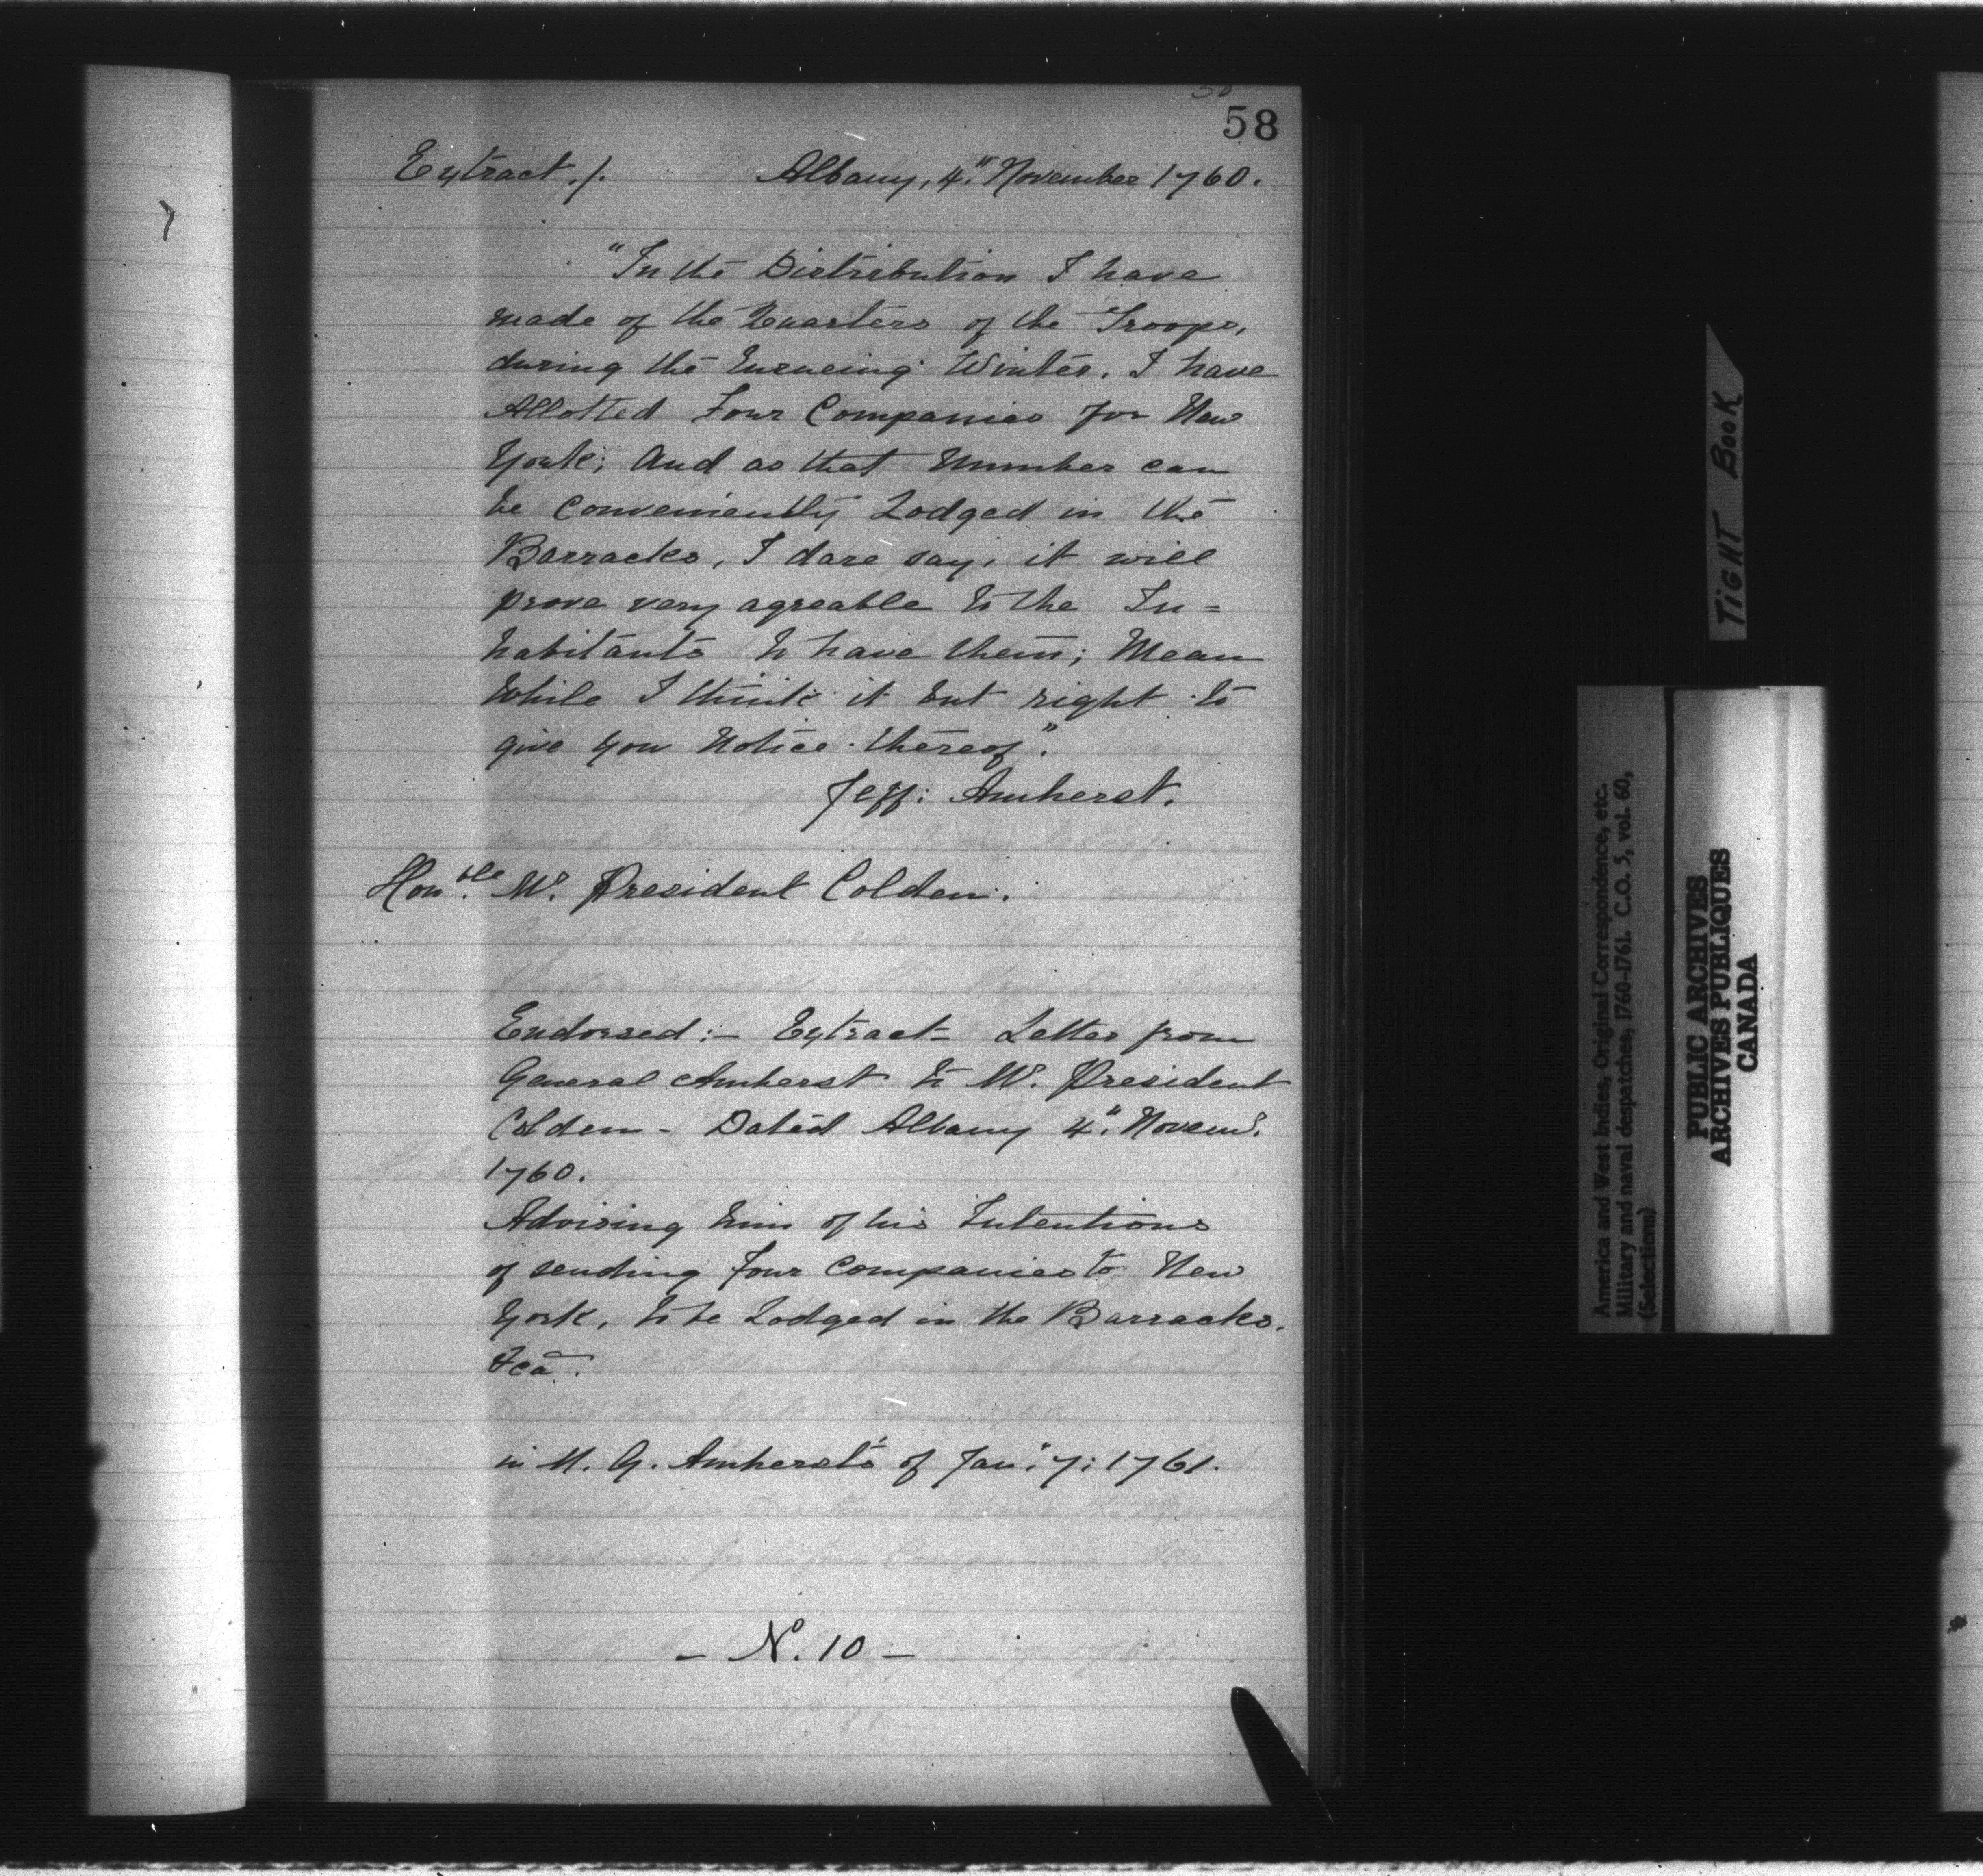 58
Extract./. Albany, 4." November 1760.
"In the Distribution I have
made of the Quarters of the Troops,
during the Ensueing Winter, I have
Allotted Four Companies for New
York; And as that Number can
be Conveniently Lodged in the
Barracks, I dare say, it will
prove very agreable to the In=
habitants to have them; Mean
While I think it but right to
give you Notice thereof".
Jeff: Amherst.
Hon.ble Mr. President Colden.
Endorsed:- Extract Letter from
General Amherst to Mr. President
Colden - Dated Albany 4." Novemr.
1760.
Advising him of his Intentions
of sending Four Companies to New
York, to be Lodged in the Barracks,
&ca.
in M. G. Amherst's of Jan: 7: 1761.
- No. 10 -
TIGHT BOOK
America and West Indies, Original Correspondence, etc.
Military and naval despatches, 1760-1761. C.O. 5, vol. 60,
(Selections)
PUBLIC ARCHIVES
ARCHIVES PUBLIQUES
CANADA